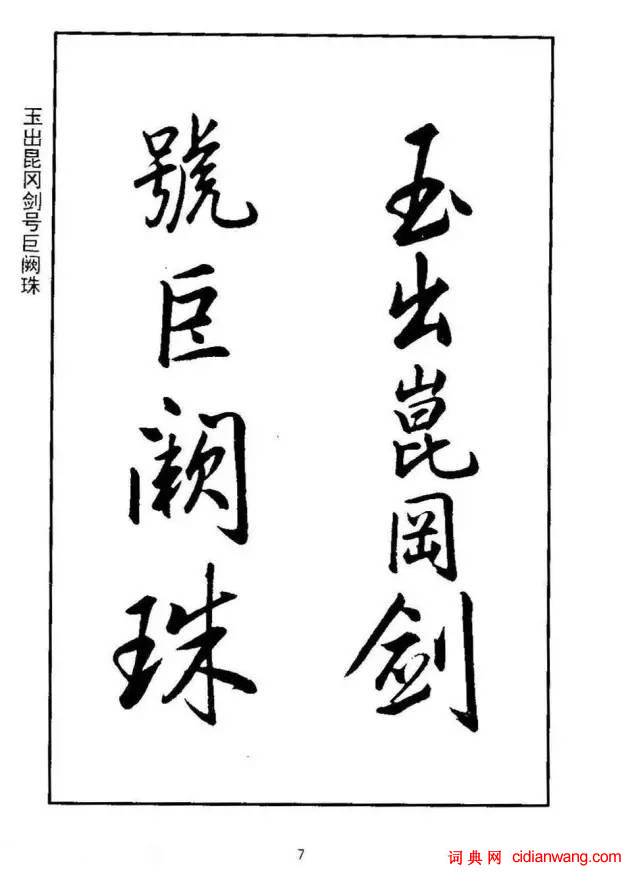 玉出崑岡剑
號巨阙珠
玉出昆冈剑号巨阙珠
7
词典网 cidianwang.com